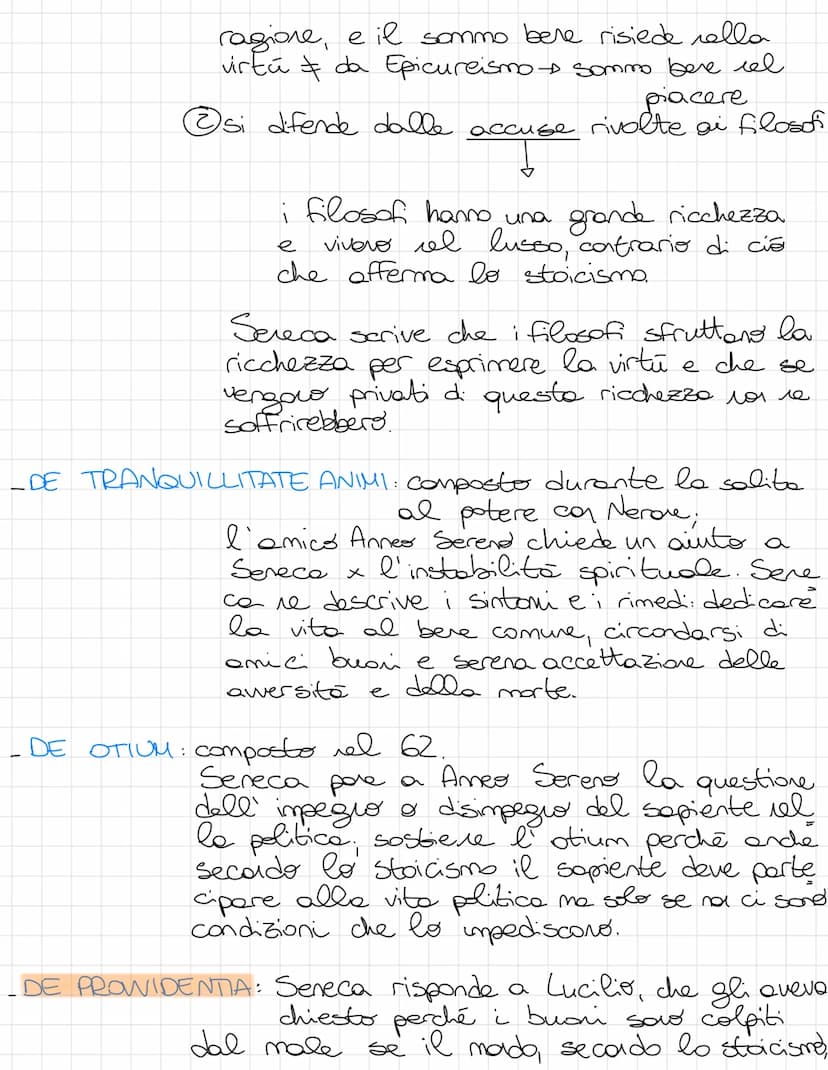 ragione, e il sommo bene risiede nella
virtù ≠ da Epicureismo → sommo bene nel
piacere
② si difende dalle accuse rivolte ai filosofi
↓
i filosofi hanno una grande ricchezza
e vivono nel lusso, contrario di ciò
che afferma lo stoicismo.
Seneca scrive che i filosofi sfruttano la
ricchezza per esprimere la virtù e che se
vengono privati di questa ricchezza non ne
soffrirebbero.
- DE TRANQUILLITATE ANIMI: composto durante la salita
al potere con Nerone;
l'amico Anneo Sereno chiede un aiuto a
Seneca x l'instabilità spirituale. Sene
ca ne descrive i sintomi e i rimedi: dedicare
la vita al bene comune, circondarsi di
amici buoni e serena accettazione delle
avversità e della morte.
- DE OTIUM: composto nel 62.
Seneca pone a Anneo Sereno la questione
dell'impegno o disimpegno del sapiente nel
la politica; sostiene l'otium perché anche
secondo lo stoicismo il sapiente deve parte
cipare alla vita politica ma solo se non ci sono
condizioni che lo impediscono.
- DE PROVIDENTIA: Seneca risponde a Lucilio, che gli aveva
chiesto perché i buoni sono colpiti
dal male se il mondo, secondo lo stoicismo,